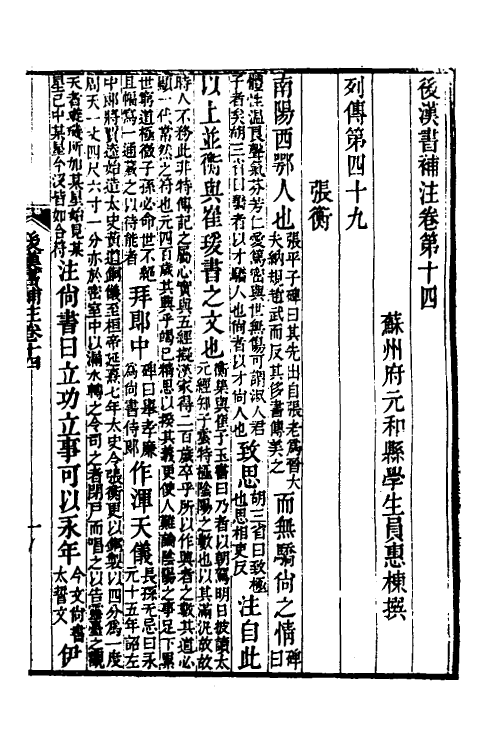 後漢書補注卷第十四
蘇州府元和縣學生員惠棟撰
列傳第四十九
張衡
南陽西鄂人也 張平子碑曰其先出自張老為晉大夫納規趙武而反其侈書傳美之 而無驕尚之情 碑曰
體性溫良聲氣芬芳仁愛篤密與世無傷可謂淑人君子者矣胡三省曰驕者以才驕人也尚者以才尚人也 致思 胡三省曰致極也思相吏反 注自此
以上並衡與崔瑗書之文也 衡集與崔子玉書曰乃者以朝駕明日披讀太元經知子雲特極陰陽之數也以其滿汎故故
時人不務此非特傳記之屬心實與五經擬漢家得二百歲卒乎所以作興者之數其道必顯一代常然之符也元四百歲其興乎竭己精思以揆其義更使人難論陰陽之事足下累
世窮道極微子孫必命世不絕且幅寫一通藏之以待能者 拜郎中 碑曰舉孝廉為尚書侍郎 作渾天儀 長孫无忌曰永元十五年詔左
中郎將賈逵始造太史黃道銅儀至桓帝延熹七年太史令張衡更以銅製以四分為一度周天一丈四尺六寸一分亦於密室中以漏水轉之令司之者閉戶而唱之以告靈臺之觀
天者璇璣所加某星始見某星已中某星今沒皆如合符 注尚書曰立功立事可以永年 今文尚書太誓文 伊
後漢書補注卷十四
一